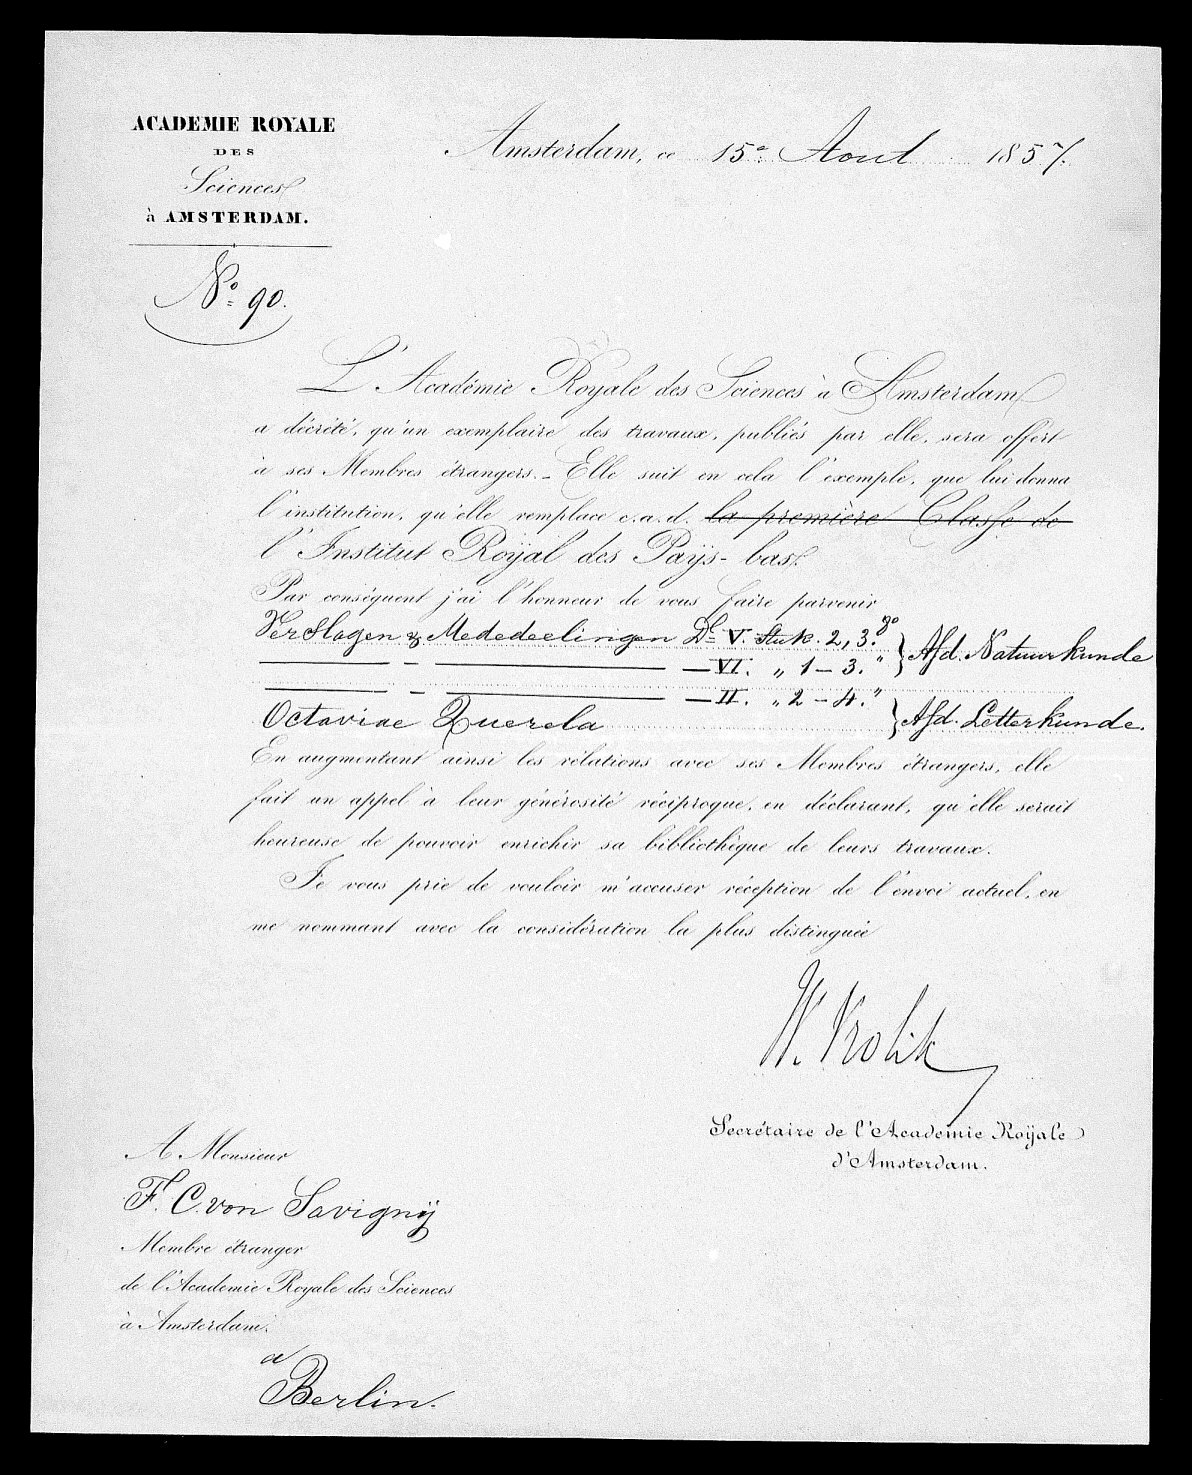 ACADEMIE ROYALE
DES
Sciences
à AMSTERDAM.
Amsterdam, ce 15e. Aout 1857.
No. 90.
L'Académie Royale des Sciences à Amsterdam
a décrété, qu'un exemplaire des travaux, publiés par elle, sera offert
à ses Membres étrangers. - Elle suit en cela l'exemple, que lui donna
l'institution, qu'elle remplace c.a.d. la première Classe de
l'Institut Royal des Pays-bas.
Par conséquent j'ai l'honneur de vous faire parvenir
Verslagen & Mededeelingen Dl. V. Stuk. 2, 3.
— - — — VI. „ 1 — 3. " } Afd. Natuurkunde
— - — — II. „ 2 — 4. "
Octaviae Querela } Afd. Letterkunde.
En augmentant ainsi les rélations avec ses Membres étrangers, elle
fait un appel à leur générosité réciproque, en déclarant, qu'elle serait
heureuse de pouvoir enrichir sa bibliothèque de leurs travaux.
Je vous prie de vouloir m'accuser réception de l'envoi actuel, en
me nommant avec la considération la plus distinguée
W. Vrolik
Secrétaire de l'Academie Royale
d'Amsterdam.
A Monsieur
F. C. von Savigny
Membre étranger
de l'Academie Royale des Sciences
à Amsterdam.
a
Berlin.